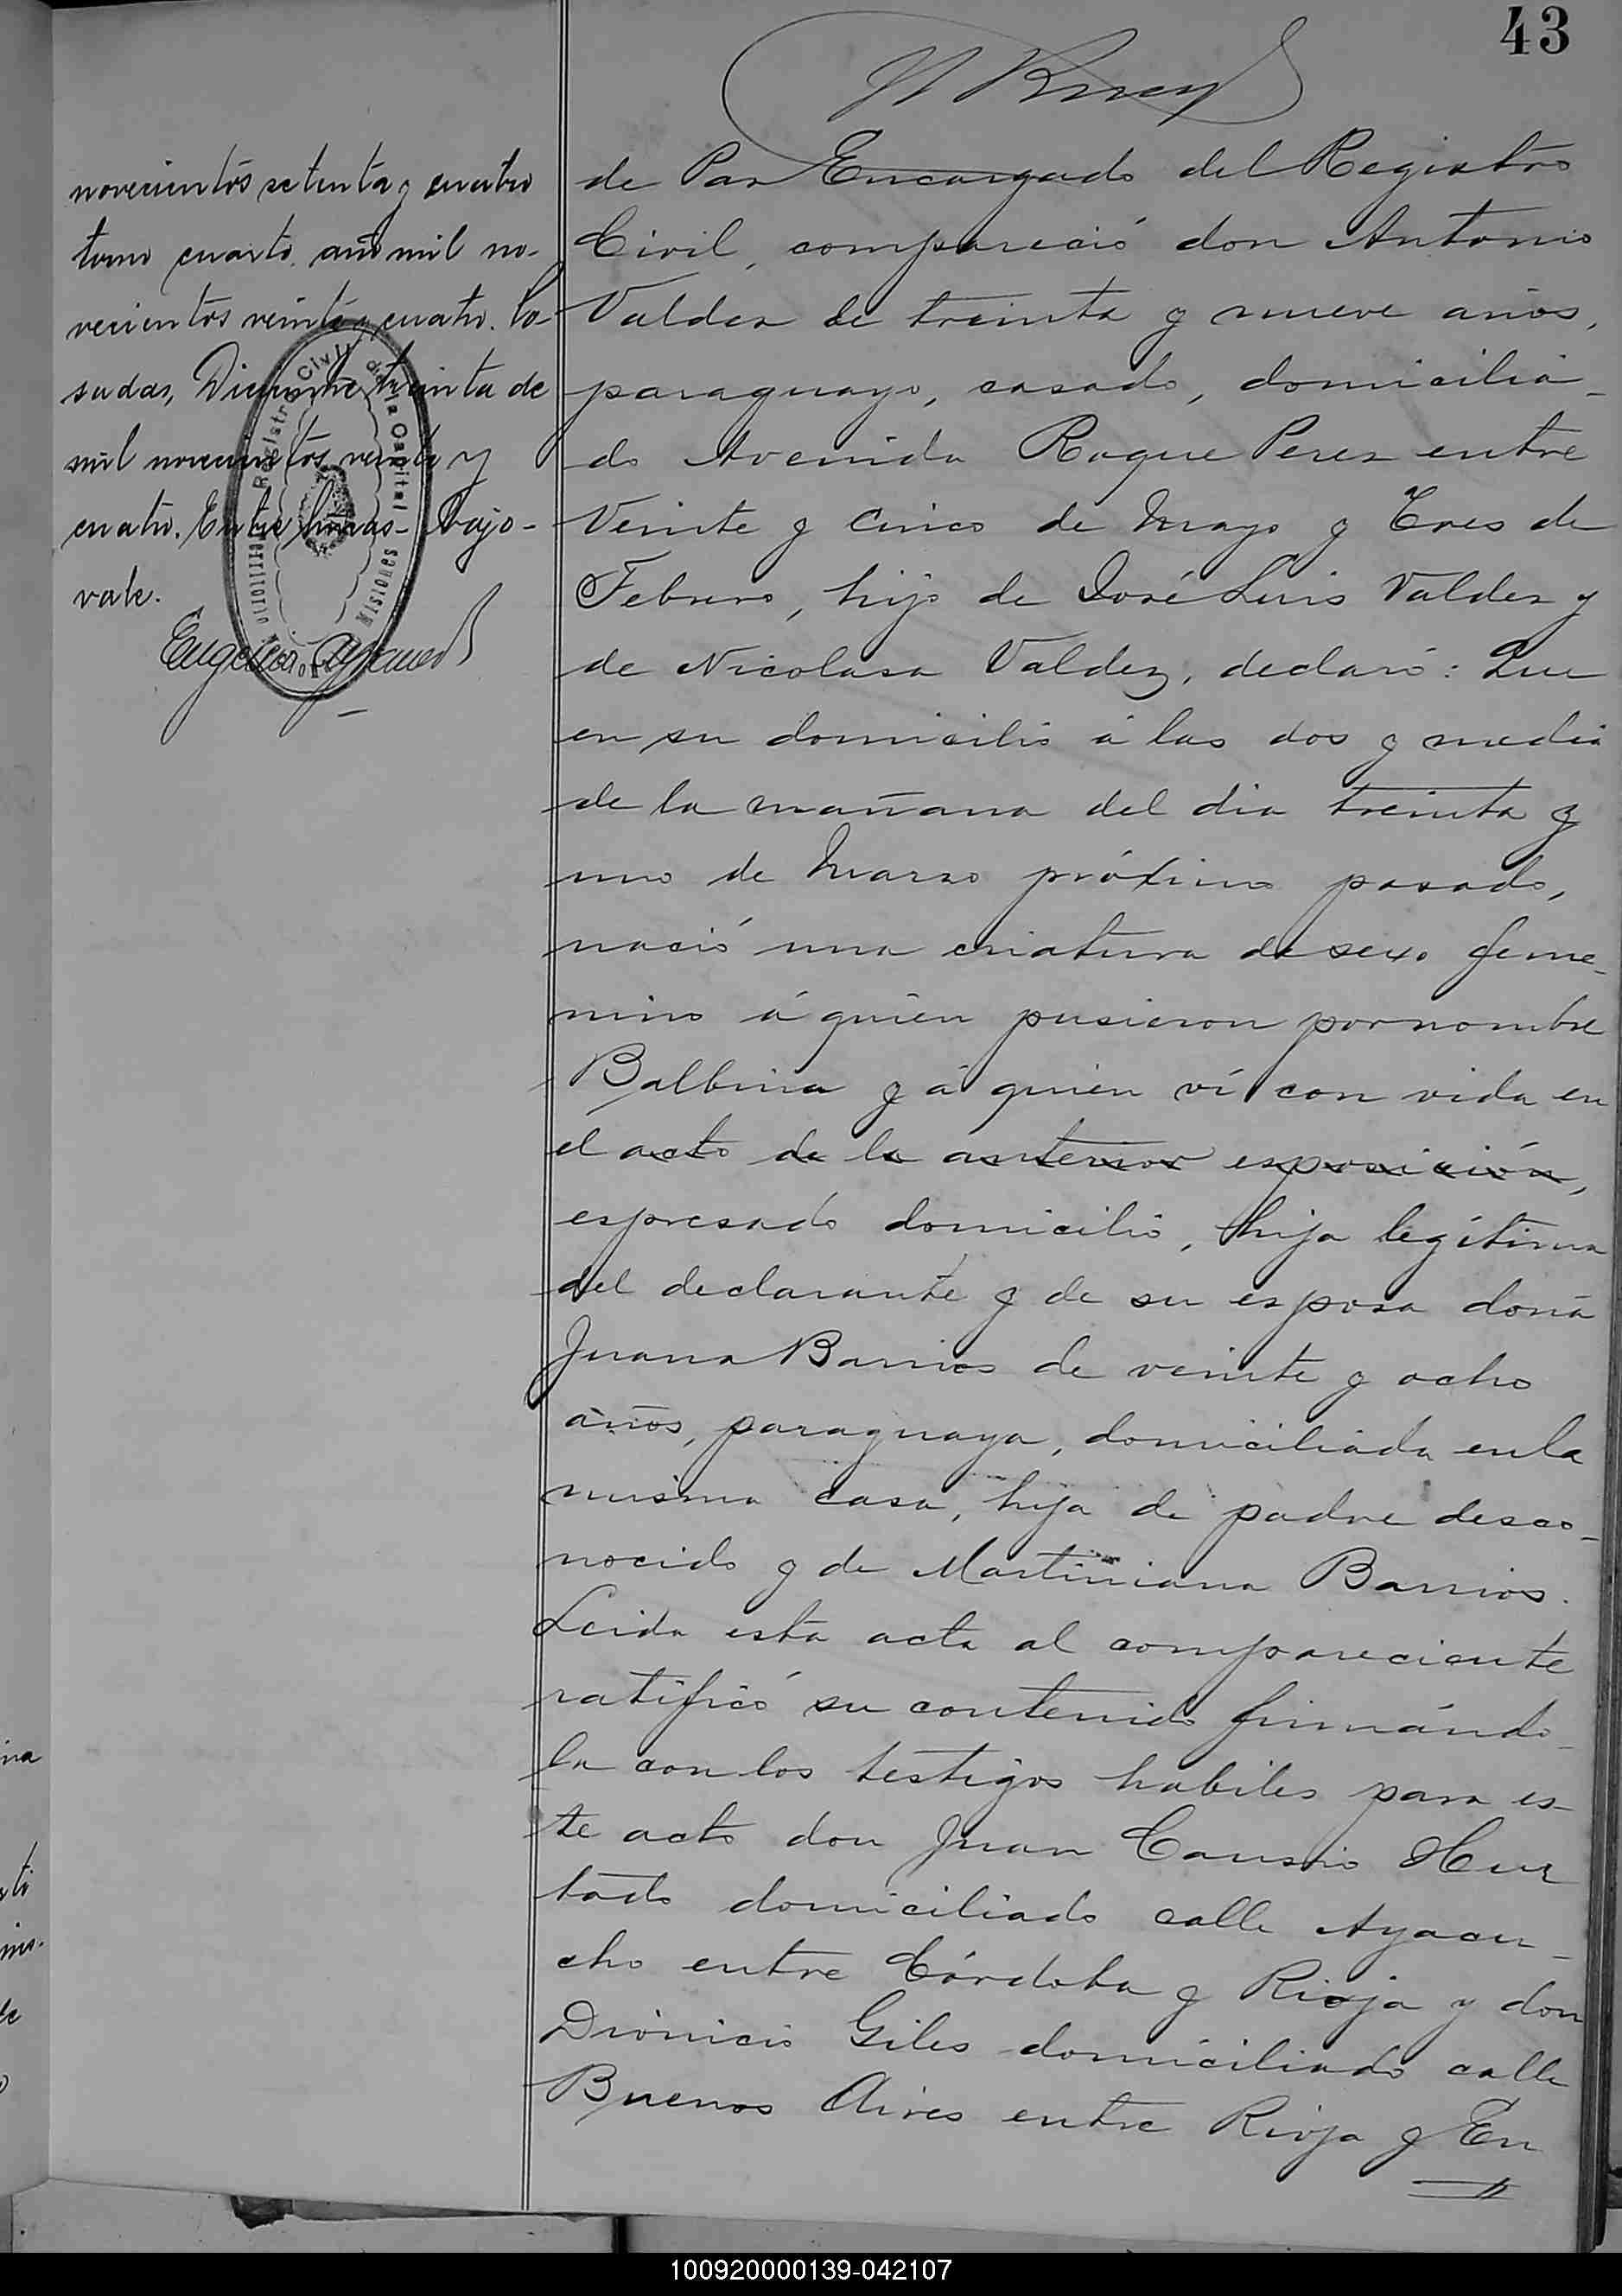 43
novecientos setenta y cuatro
tomo cuarto, año mil no-
vecientos veinte y cuatro. Po-
sadas, Diciembre treinta de
mil novecientos veinte y
cuatro. Entre lineas - bajo -
vale.
Registro Civil de la Capital
Territorio Misiones
de Paz Encargado del Registro
Civil, compareció don Antonio
Valdez de treinta y nueve años,
paraguayo, casado, domicilia-
do Avenida Roque Perez entre
Veinte y Cinco de Mayo y Tres de
Febrero, hijo de José Luis Valdez y
de Nicolasa Valdez, declaró: Que
en su domicilio á las dos y media
de la mañana del dia treinta y
uno de Marzo próximo pasado,
nació una criatura de sexo feme-
nino á quien pusieron por nombre
Balbina y á quien ví con vida en
el acto de la anterior esposición,
espresado domicilio, hija legítima
del declarante y de su esposa doña
Juana Barrios de veinte y ocho
años, paraguaya, domiciliada en la
misma casa, hija de padre desco-
nocido y de Martiniana Barrios.
Leida esta acta al compareciente
ratificó su contenido firmándo-
la con los testigos habiles para es-
te acto don Juan Hur
tado domiciliado calle Ayacu-
cho entre Córdoba y Rioja y don
Dionicio Giles domiciliado calle
Buenos Aires entre Rioja y En
100920000139-042107